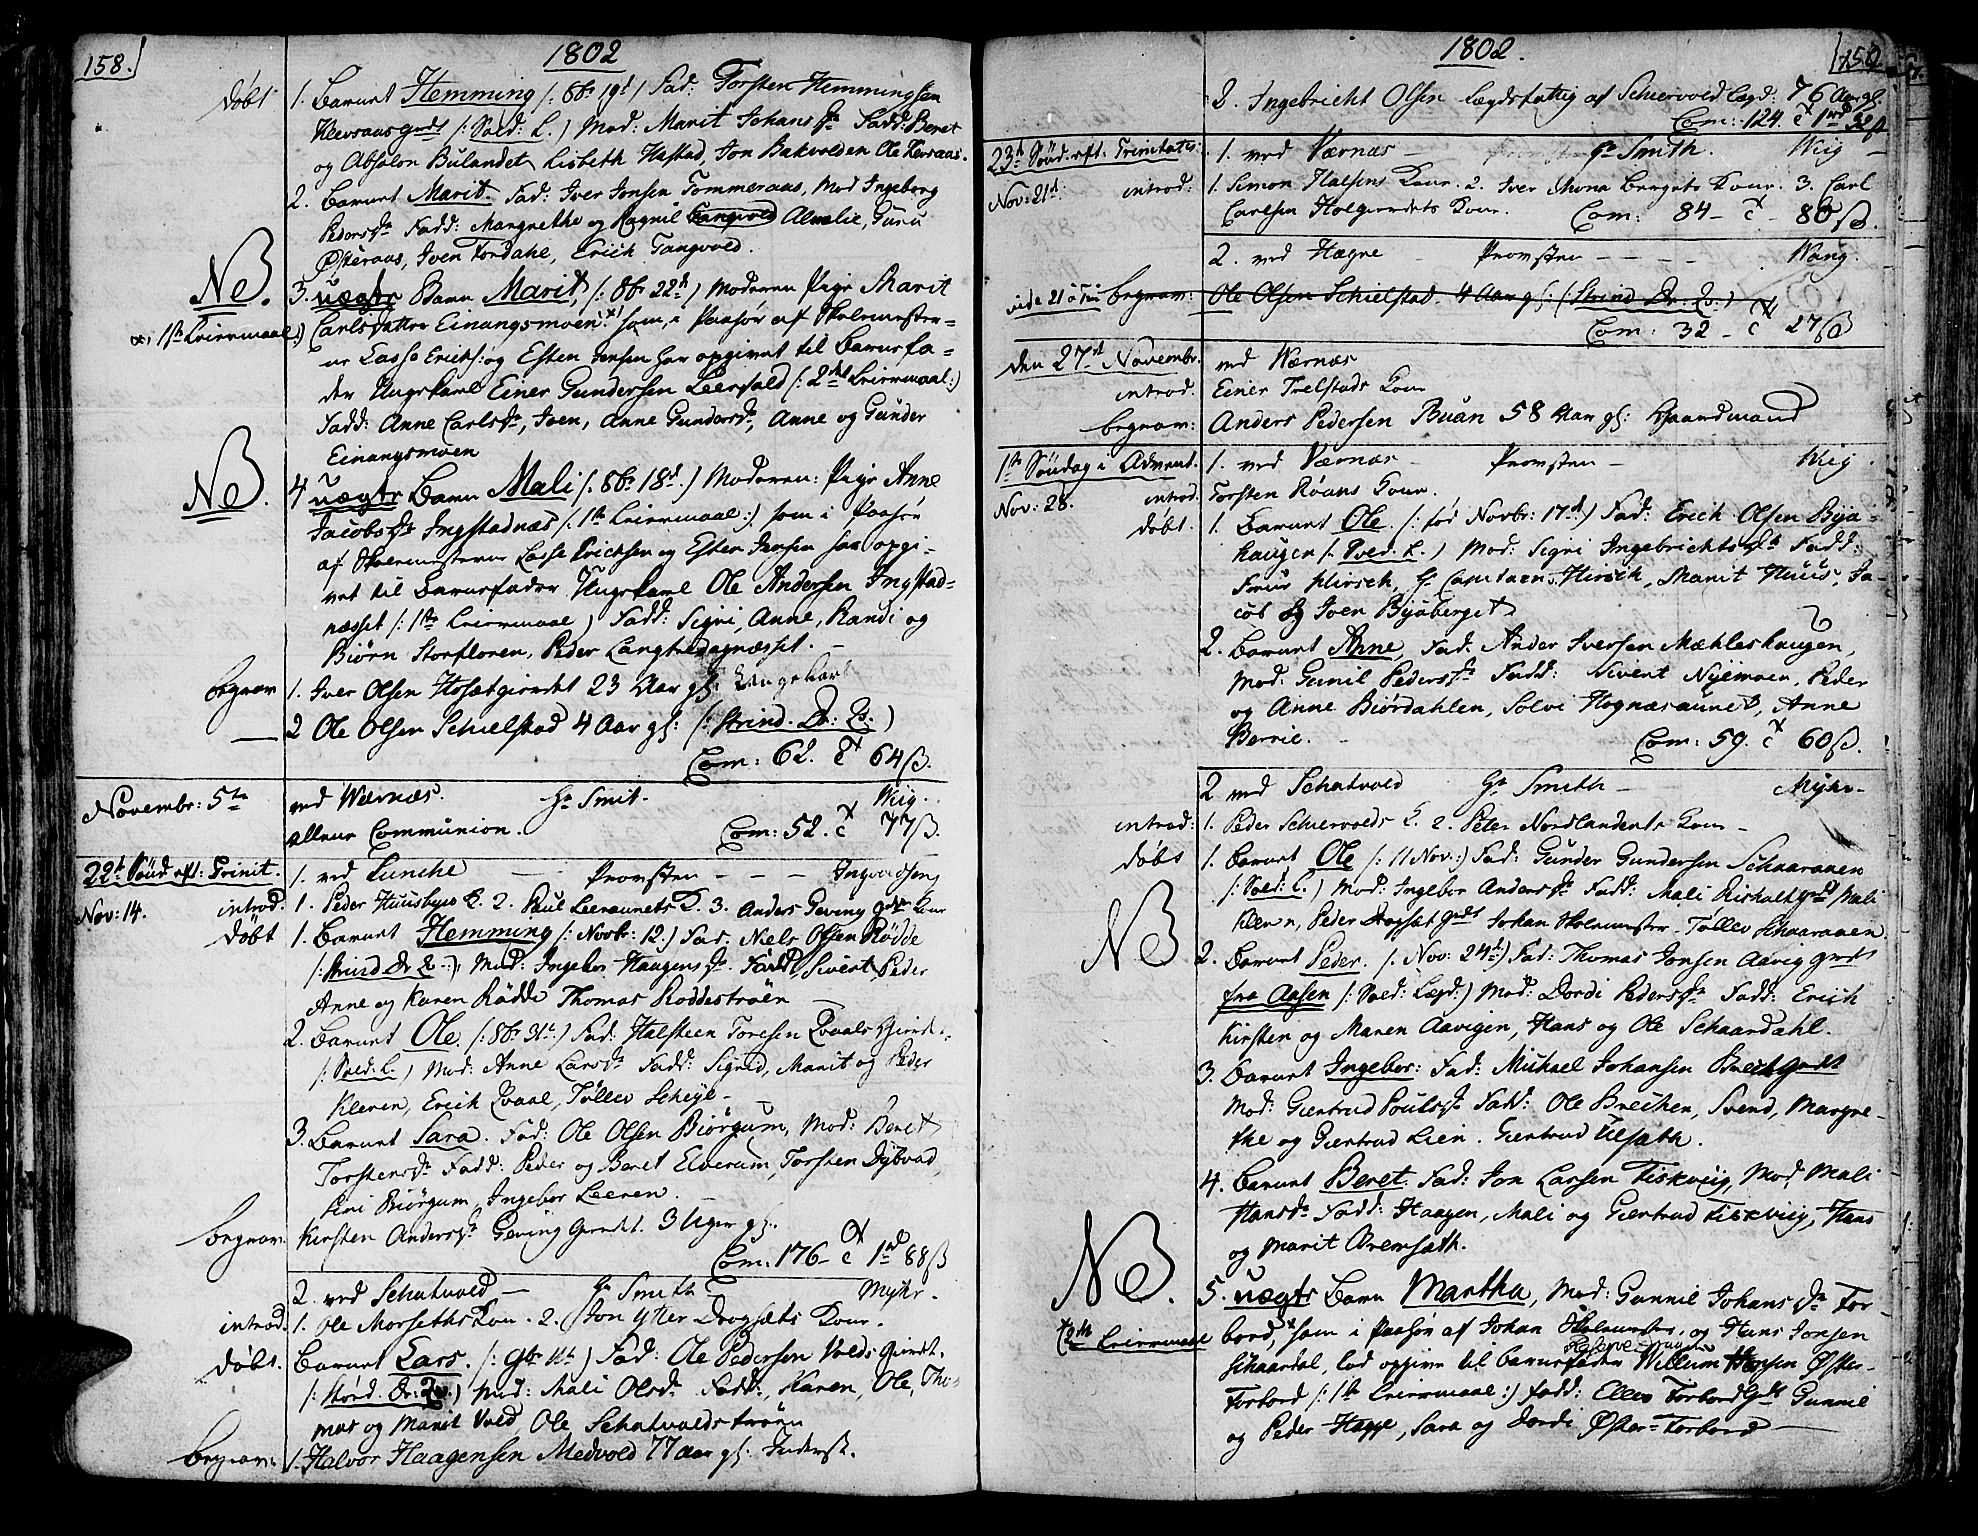 158.
1802
døbt 1. Barnet Hemming /: 8br 19d / Fad: Torsten Hemmingsen
Klevsaas gndt /: Sold: L. / Mod: Marit Johans Dr Fadd: Beret
og Absolon Bulandet, Lisbeth Hastad, Jon Bakvolden Ole Kleraas.
2. Barnet Marit. Fad: Iver Jonsen Tommeraas, Mod Ingeborg
Peders Dr Fadd: Margrethe og Ragnil Tangvold Almelie, Guru
Østeraas, Iven Fordahl, Erich Tangvold.
NB. 3. uægte Barn Marit /: 8br 22d / Moderen Pige Marit
x, 1ste Leiermaal :) Carlsdatter Einangsmoen x) som, i Paahør af Skolemester-
ne Lasse Erichs: og Esten Jensen har opgivet til Barnefa-
der Ungekarl Einer Gundersen Leerfald /: 2det Leiermaal :)
Fadd: Anne Carls Dr, Iven, Anne Gunders Dr, Anne og Gunder
Einangsmoen
NB. 4 uægte Barn Mali /: 8br 18d. / Moderen: Pige Anne
Jacobs Dr Ingstadnæs /: 1ste Leiermaal :) som i Paahør
af Skolemesterne Lasse Erichsen og Esten Jensen har opgi-
vet til Barnefader Ungekarl Ole Andersen Ingstad-
næsset /: 1ste Leiermaal / Fadd: Sigri, Anne, Randi og
Biørn Storfloren, Peder Langtrdagnæsset.
begrav 1. Iver Olsen Hosætgrendet 23 Aar gl: Ungekarl
2 Ole Olsen Schielstad 4 Aar gl: (: Strind. Dr: L: )
Com: 62. c 64 ß.
Novembr: 5te ved Wærnæs. Hr Smit. Wiig.
allene Communion. Com: 52. c 77 ß.
22de Søud eft: Trinit. 1. ved Lunche — Provsten — Ingvaldsen
Nov: 14. introd. 1. Peder Huusbyes K. 2. Paul Leeraunets K. 3. Anders Geving grdr Kone
døbt 1. Barnet Hemming /: Novbr: 12. / Fad. Niels Olsen Rødde
/: Strind Dr L :/, Mod: Ingebor Haagens Dr. Fadd Sivert, Peder
Anne og Karen Rødde Thomas Roddestrøen —
2. Barnet Ole. /: 8br 31te. / Fad: Halsteen Toresen Qvaals Grindt.
/: Sold: L. / Mod: Anne Lars Dr Fadd: Sigrid, Marit og Peder
Kleven, Erich Qvaal, Tøllev Scheyl. —
3. Barnet Sara. Fad: Ole Olsen Biørgum, Mod: Beret
Torstens Dr Fadd: Peder og Beret Elverum, Torsten Dybvad,
Siri Biørgum, Ingebor Leeren. —
begrav: Kirsten Anders Dr Geving grendet. 3 Uger gl.
Com: 176 - c 1rd 88 ß
2. ved Schatvold — Hr Smith Myhr.
introd. 1. Ole Morseths Kon. 2. Jon Ytter Dragsæts Kone.
døbt. Barnet Lars. /: 9br 11te / Fad: Ole Pedersen Volds Grindt.
/: Nord. Dr: L. / Mod: Mali Ols Dr. Fadd:, Karen, Ole, Tho-
mas og Marit Vold, Ole Schatvoldstrøen
begrav: 1. Halvor Haagensen Medvold 77 Aar gl. Inderst.
1802.
159.
2. Ingebricht Olsen lægdsfattig af Schiervold lægd: 76 Aar gl.
Com: 124. c 1rd 32 ß
23de Søud. eft: Trinitatis: 1. ved Værnæs — Hr Smith. Wiig —
Nov: 21d. introd: 1. Simon Halsens Kone. 2. Iver Mona bergets Kone. 3. Carl
Carlsen Holgrendets Kone. Com: 84 - c - 80 ß.
2. ved Hægre Provsten — Wang.
begrav: Ole Olsen Schielstad. 4 Aar gl: (Strind Dr: L. )
Com: 32 - c 27 ß
den 27d Novembr. ved Wærnæs
introd. Einer Trelstads Kone
begrav: Anders Pedersen Buan 58 Aar gl: Gaardmand
1ste Søndag i Advent. 1. ved Værnæs — Provsten — Wiig.
Nov: 28. introd. Torsten Røans Kone.
døbt. 1. Barnet Ole. /: fød Novbr: 17d / Fad: Erich Olsen Bya-
haugen /: Qved. L. / Mod: Sigri Ingebrichts Dr Fadd:
Frue Hirsch, Hr Capitaen Hirsch, Marit Huus, Ja-
cob og Iven Byaberget
2. Barnet Anne, Fad: Ander Iversen Mæhleshaugen,
Mod: Gunil Peders Dr Fadd: Sivert Nyemoen, Peder
og Anne Biørdahlen, Solvi Hognæsaunet, Anne
Berrie. — Com: 59. c 60 ß.
2 ved Schatvold Hr Smith — Myhr-
introd: 1. Peder Schiervolds K. 2. Peter Nordlandents Kone —
døbt 1. Barnet Ole /: 11 Nov: / Fad: Gunder Gundersen Schaaraaen
/: Sold: L. / Mod: Ingebor Anders Dr Fadd: Mali Kirkalt Grdt Mali
Kleven, Peder Dragsæt Grdt Johan Skolemester. Tøllev Schaaraaen.
NB 2. Barnet Peder. /: Nov: 24de / Fad: Thomas Jonsen Aavig Grdt
fra Aasen /: Sold: Lægd: / Mod: Dordi Peders Dr Fadd: Erich
Kirsten og Maren Aavigen, Hans og Ole Schaardahl.
3. Barnet Ingebor: Fad: Michael Johansen Brech Grdt
Mod: Giertrud Pouls Dr Fadd: Ole Brechen, Svend, Margre-
the og Giertrud Lien. Giertrud Ulsath.
4. Barnet Beret. Fad: Jon Larsen Fiskviig, Mod Mali
Hans Dr Fadd: Haagen, Mali og Giertrud Fiskviig, Hans
og Marit Bremsæth.
NB. 5. uægte Barn Martha, Mod: Gunnil Johans Dr For-
x 2det Leiermaal bord, x som i Paahør af Johan Skolemester, og Hans Jonsen
Schaardal, lod opgive til barnefader Willum Hansen Øster-
Forbord /: 1ste Leiermaal :) Fadd: Ellev Forbord Grdt Gunnil
og Peder Happe, Sara og Dordi Øster-Forbord —